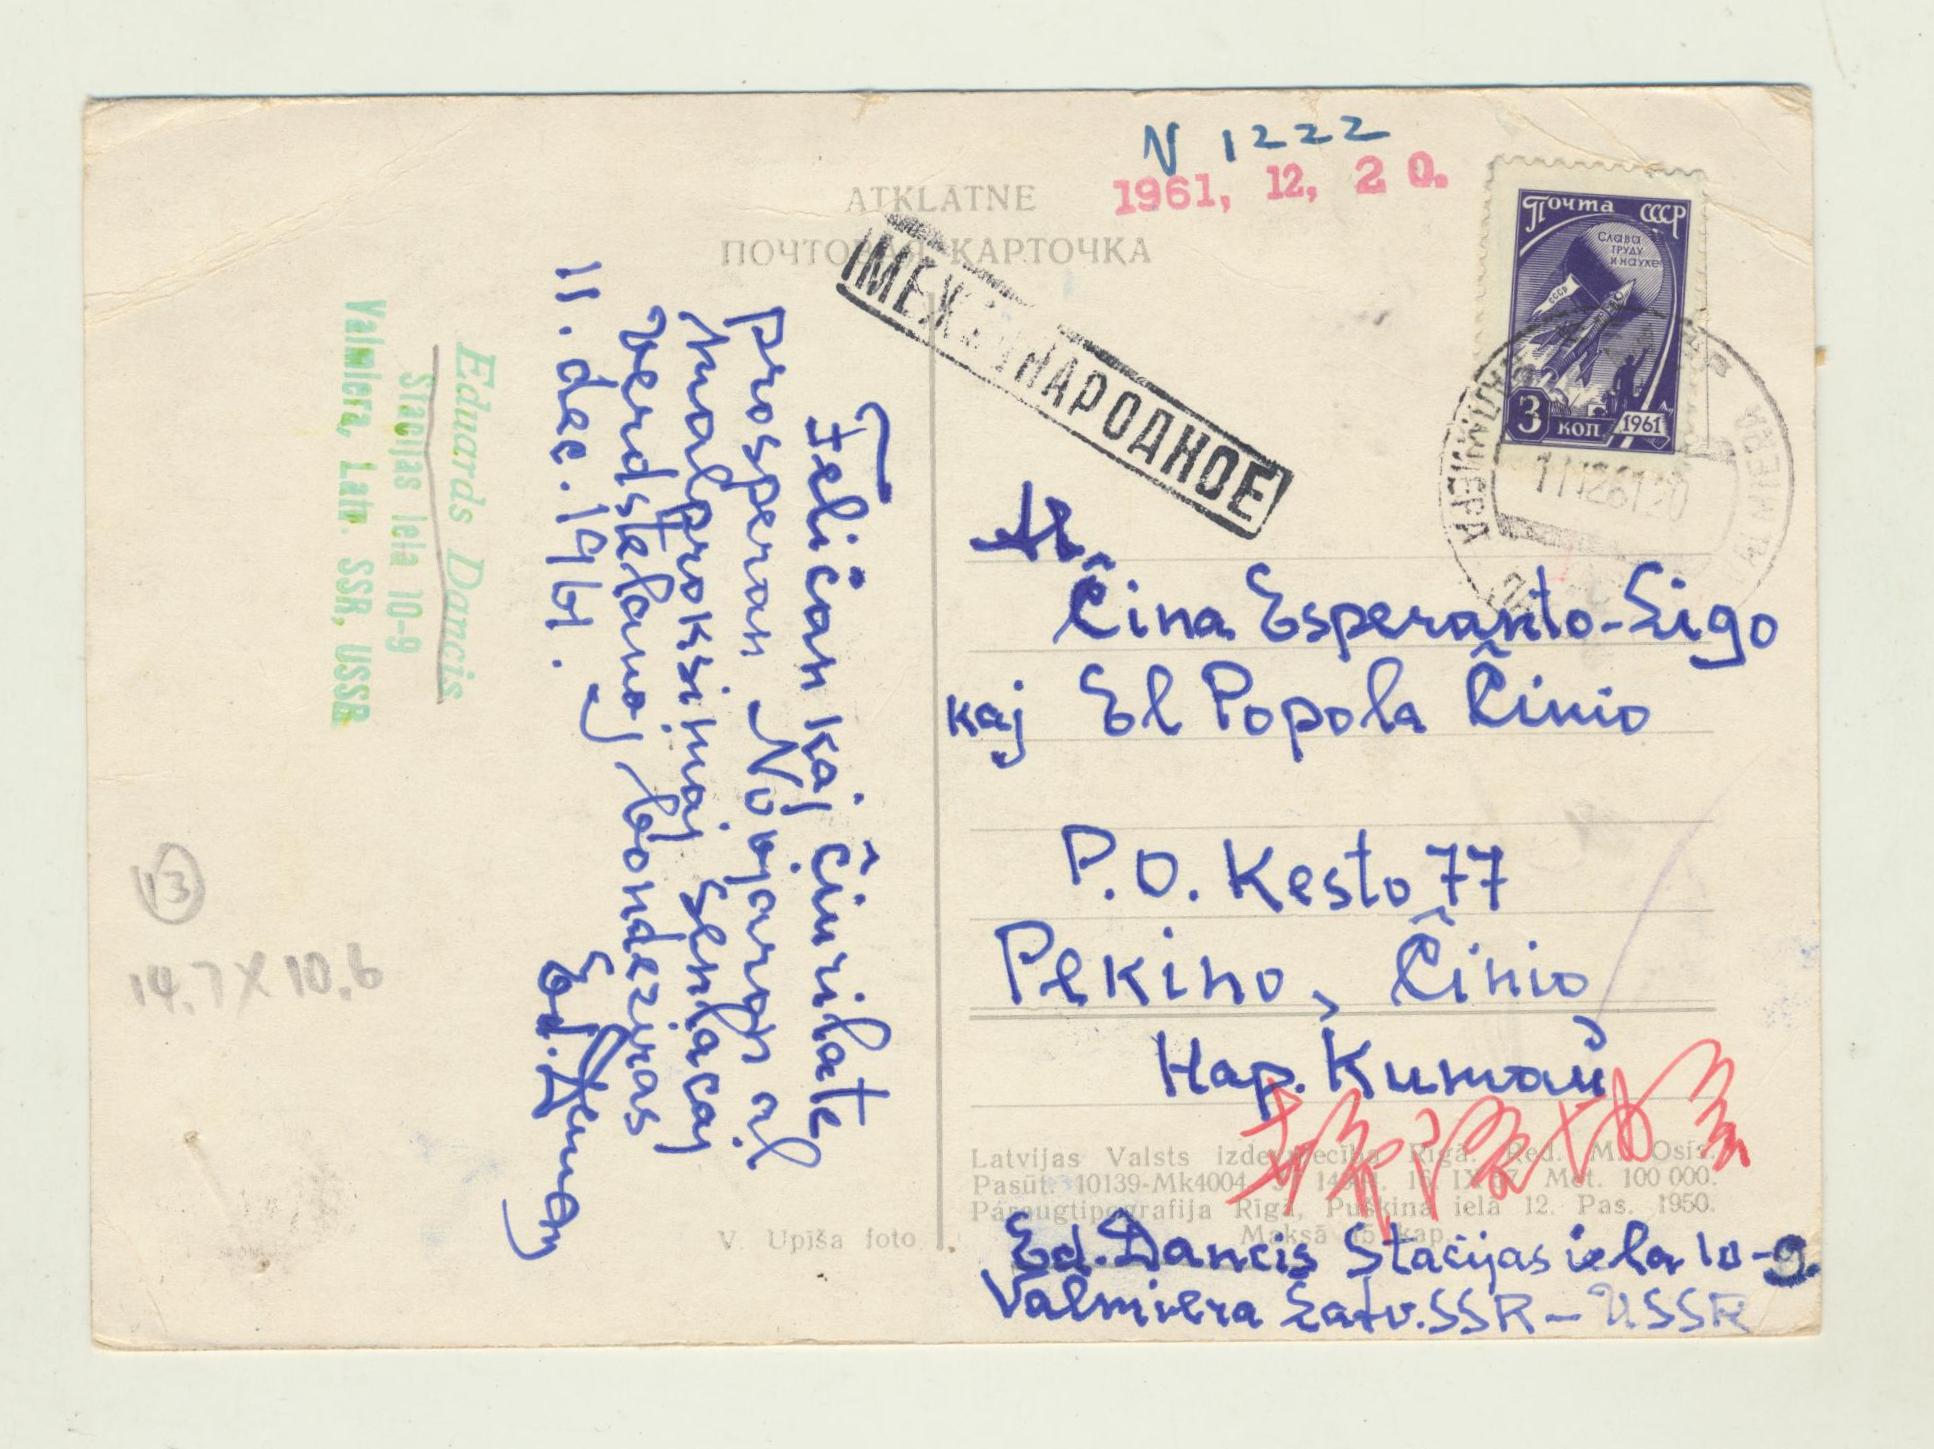 N 1222
1961, 12, 20.
ATKLĀTNE
ПОЧТОВАЯ КАРТОЧКА
МЕЖДУНАРОДНОЕ
Почта СССР
СЛАВА
ТРУДУ
И НАУКЕ
СССР
3 КОП 1961
ВАЛМИЕРА
VALMIERA
Eduards Dancis
Stacijas iela 10-9
Valmiera, Latv. SSR, USSR
Feliĉan kaj ĉiurilate
prosperan Novjaron al
malproksimaj senlacaj
verdstelanoj bondeziras
11. dec. 1961.
Al
Ĉina Esperanto-Ligo
kaj El Popola Ĉinio
P.O. Kesto 77
Pekino, Ĉinio
Нар. Китай
Latvijas Valsts izdevniecība Rīgā. Red. M. Osis.
Pasūt. 10139-Mk4004 Met. 100 000.
Paraugtipogrāfija Rīgā, Puškina ielā 12. Pas. 1950.
Maksā 15 kap.
V. Upīša foto
Ed. Dancis Stacijas iela 10-9
Valmiera Latv. SSR – USSR
13
14.7 X 10.6